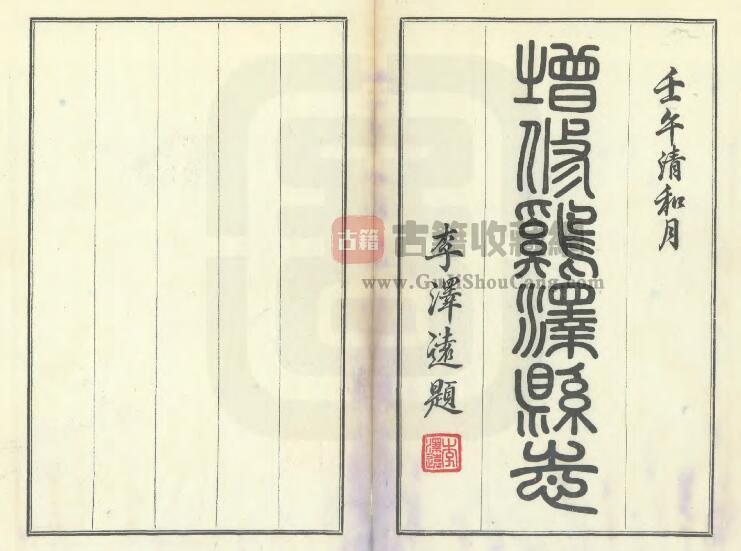 壬午清和月
增修鷄澤縣志
李澤遠題
古籍
古籍收藏網
www.GujiShouCang.com